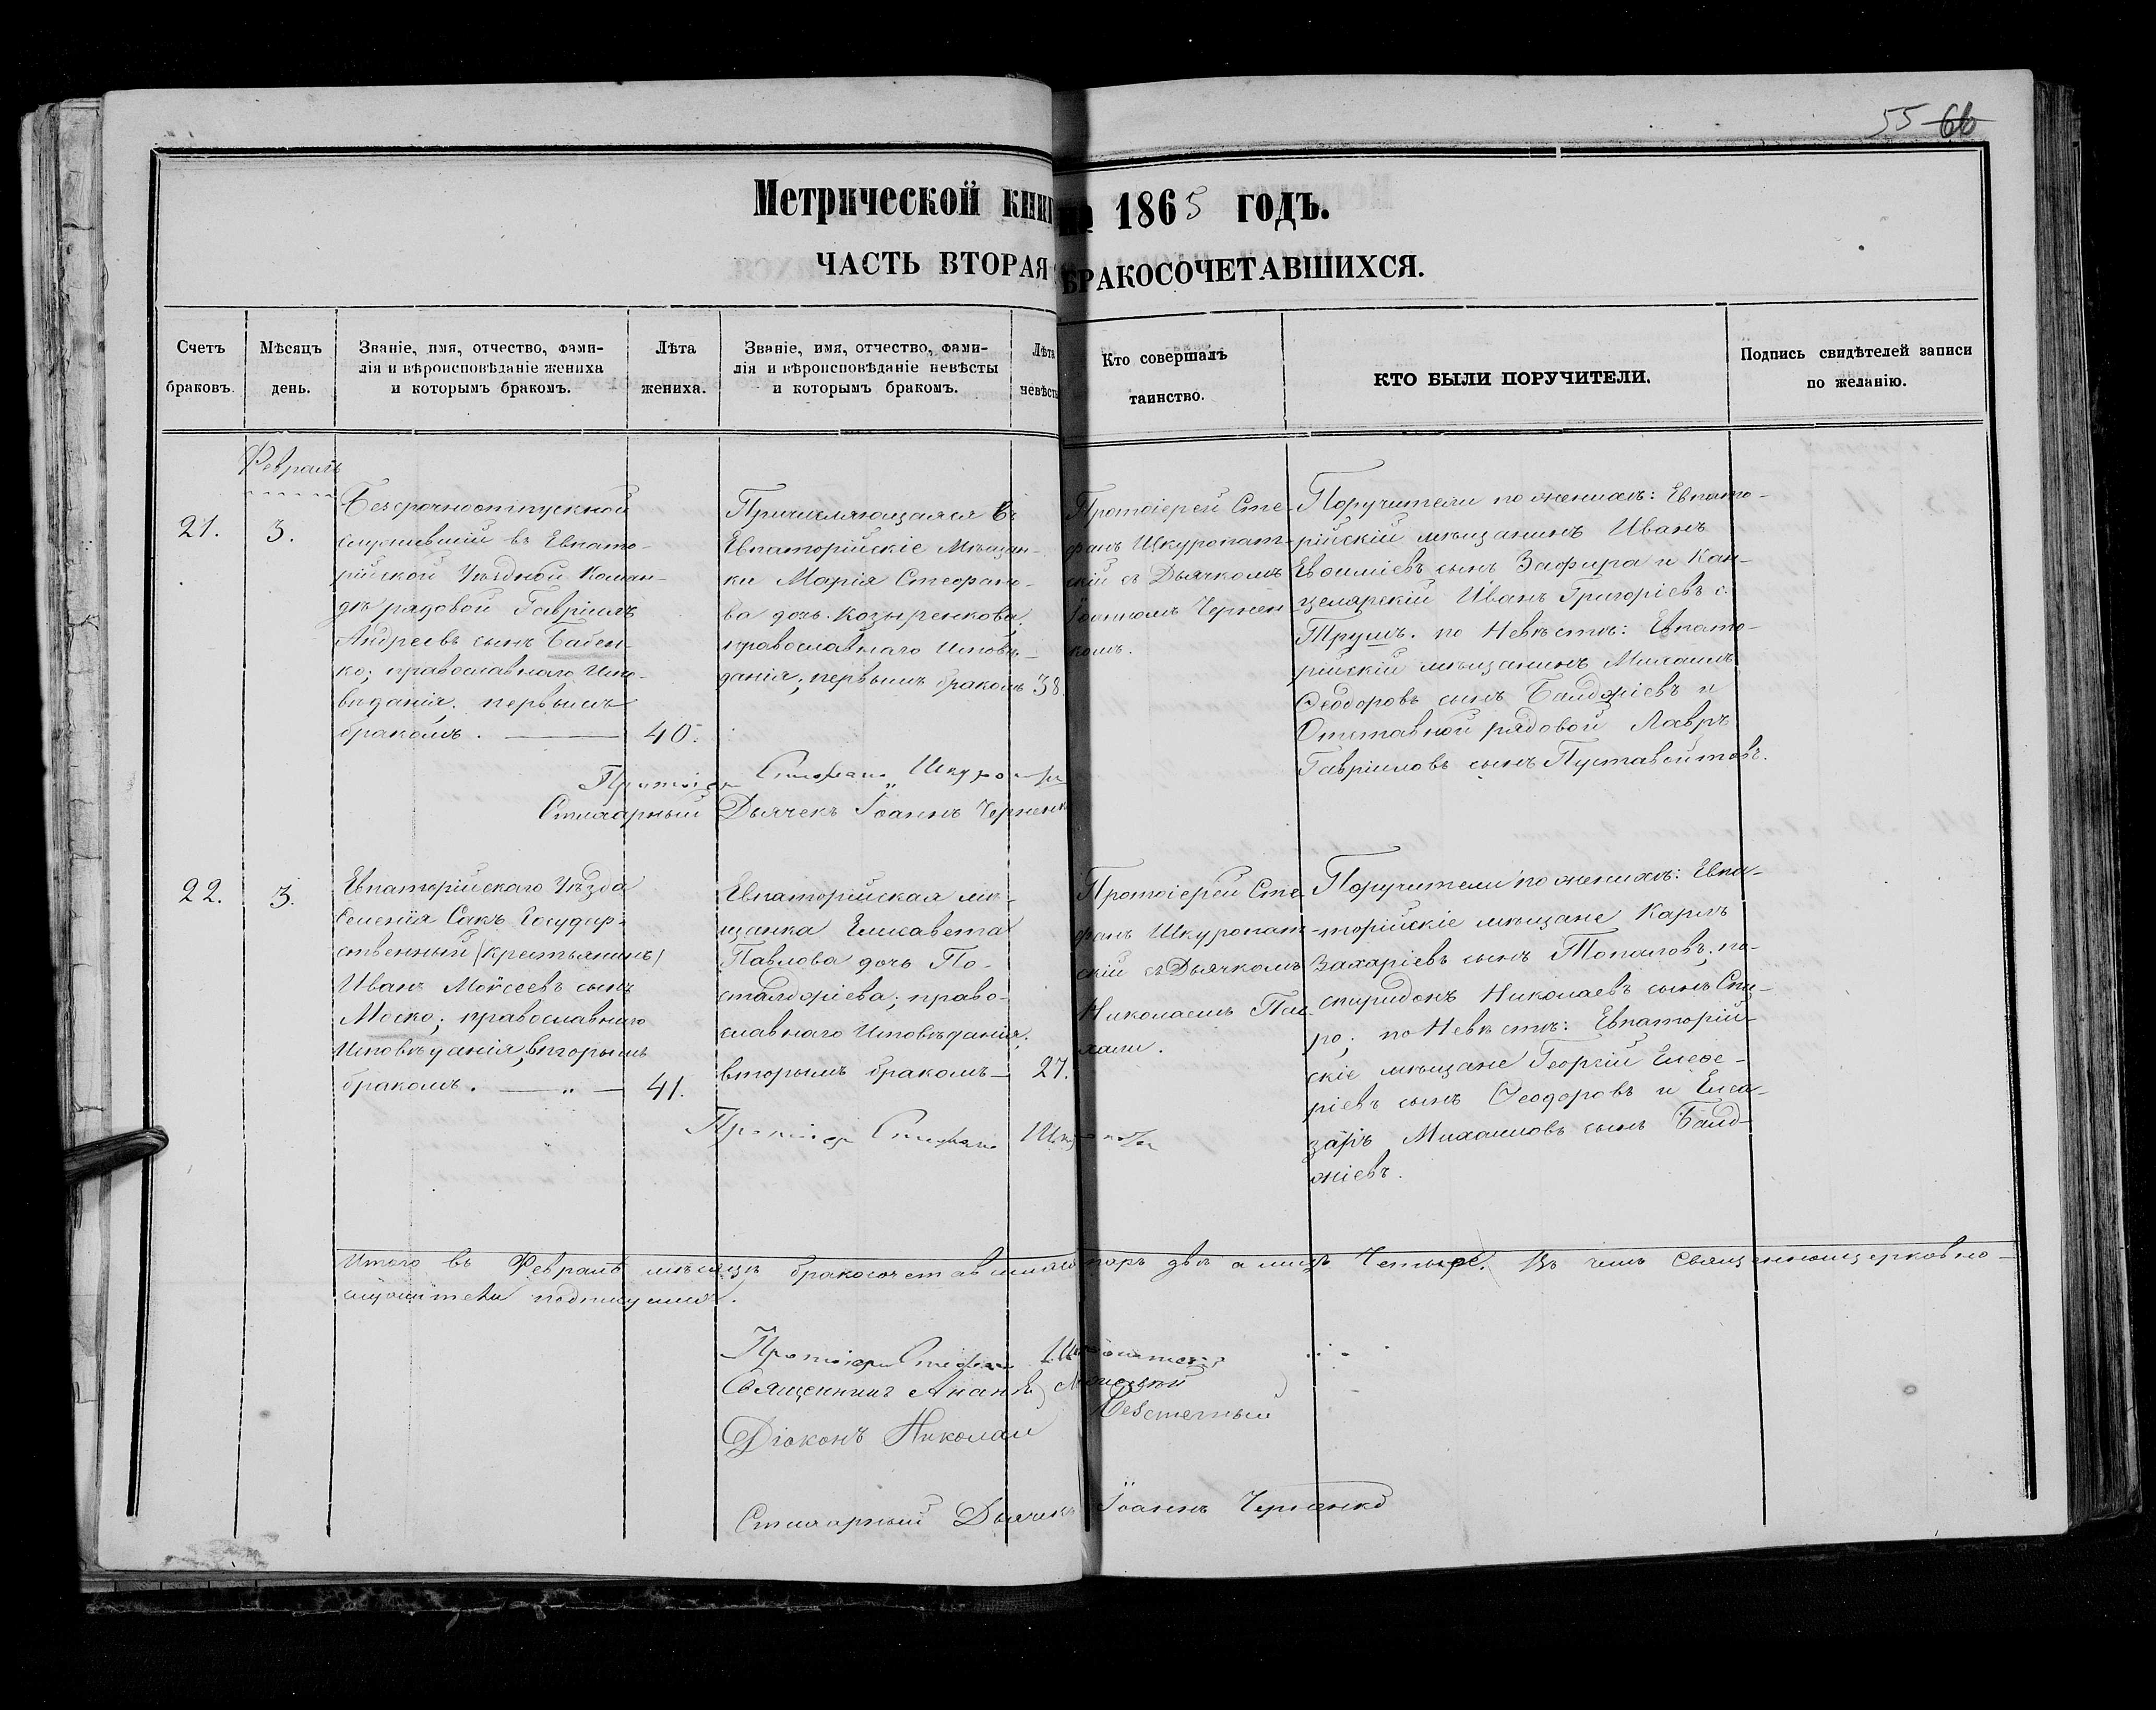 55 66
Метрической книг на 1865 годъ.
ЧАСТЬ ВТОРАЯ БРАКОСОЧЕТАВШИХСЯ.
Счетъ браковъ.
Мѣсяцъ день.
Званіе, имя, отчество, фами-
лія и вѣроисповѣданіе жениха
и которымъ бракомъ.
Лѣта
жениха.
Званіе, имя, отчество, фами-
лія и вѣроисповѣданіе невѣсты
и которымъ бракомъ.
Лѣта
невѣсты
Кто совершалъ
таинство.
КТО БЫЛИ ПОРУЧИТЕЛИ.
Подпись свидѣтелей записи
по желанію.
Февраль
21.
3.
Безсрочноотпускной
служившій въ Евпато-
рійской Уѣздной Коман-
дѣ рядовой Гавріилъ
Андреевъ сынъ Бабен-
ко; православнаго Испо-
вѣданія, первымъ
бракомъ.
40.
Причисляющаяся въ
Евпаторійскіе Мѣщан-
ки Марія Стефано-
ва дочь Козыренкова,
православнаго Исповѣ-
данія; первымъ бракомъ
38.
Протоіерей Сте-
фанъ Шкуропат-
скій съ Дьячкомъ
Іоанномъ Чернен-
комъ.
Поручители по женихѣ: Евпато-
рійскій мѣщанинъ Иванъ
Евѳиміевъ сынъ Зафира и Кан-
целярскій Иванъ Григоріевъ с.
Трушъ. по Невѣстѣ: Евпато-
рійскій мѣщанинъ Михаилъ
Ѳеодоровъ сынъ Балджіевъ и
Отставной рядовой Лавръ
Гавріиловъ сынъ Пуставойтовъ.
Протоіер Стефанъ
Стихарный Дьячекъ Іоаннъ Черненк
22.
3.
Евпаторійскаго Уѣзда
Селенія Сакъ Государ-
ственный (крестьянинъ)
Иванъ Моисеевъ сынъ
Моско; православнаго
Исповѣданія, вторымъ
бракомъ.
41.
Евпаторійская мѣ-
щанка Елисавета
Павлова дочь По-
сталджіева; право-
славнаго Исповѣданія;
вторымъ бракомъ
27.
Протоіерей Сте-
фанъ Шкуропат-
скій съ Дьячкомъ
Николаемъ Пас-
хали.
Поручители по женихѣ: Евпа-
торійскіе мѣщане Карпъ
Захаріевъ сынъ Топаловъ;
спиридонъ Николаевъ сынъ Спи-
ро; по Невѣстѣ: Евпаторій-
скіе мѣщане Георгій Елеѳе-
ріевъ сынъ Ѳеодоровъ и Елеа-
заръ Михаиловъ сынъ Балд-
жіевъ.
Протоіер Стефанъ
Итого въ Февралѣ мѣсяцѣ бракосочетавшихся паръ двѣ а лицъ Четыре. Въ чемъ Священноицерковно-
служители подписуемся.
Протоіерей Стефанъ
Священникъ
Діаконъ Николай
Стихарный Дьячекъ Іоаннъ Черненко